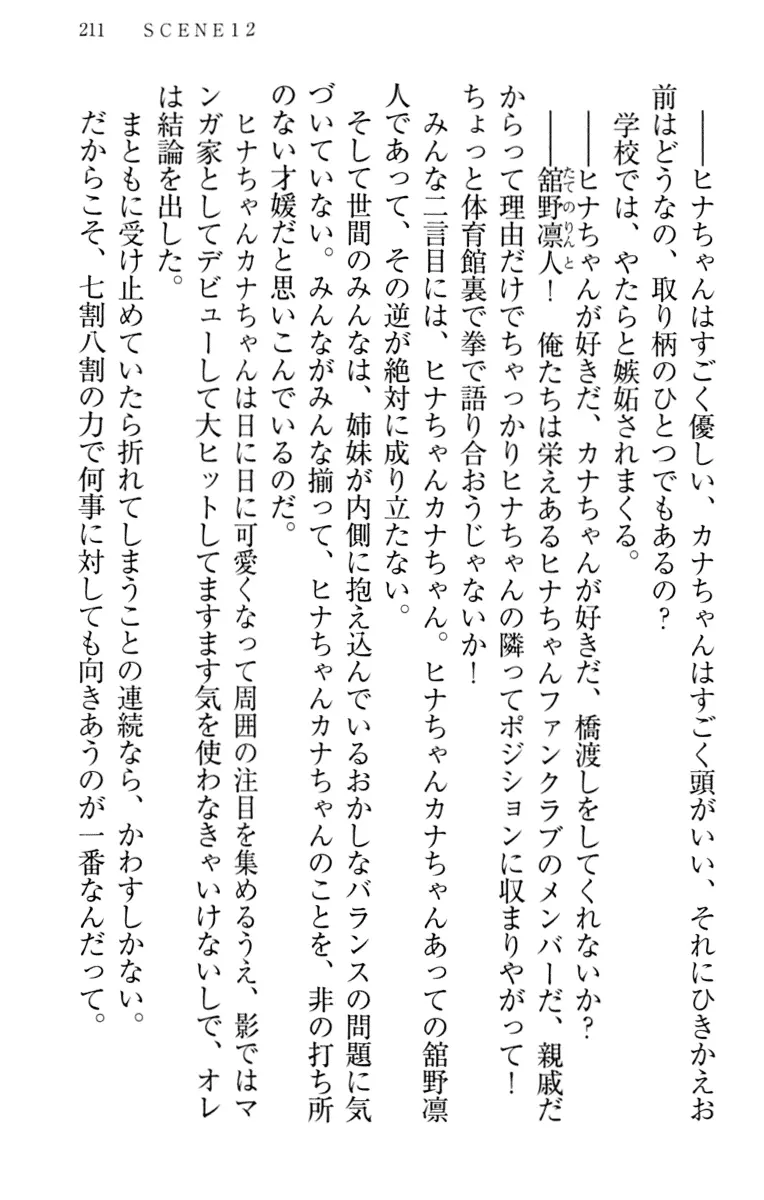 211　SCENE12
――ヒナちゃんはすごく優しい、カナちゃんはすごく頭がいい、それにひきかえお
前はどうなの、取り柄のひとつでもあるの？
学校では、やたらと嫉妬されまくる。
――ヒナちゃんが好きだ、カナちゃんが好きだ、橋渡しをしてくれないか？
――舘野凛人！　俺たちは栄えあるヒナちゃんファンクラブのメンバーだ、親戚だ
たてのりんと
からって理由だけでちゃっかりヒナちゃんの隣ってポジションに収まりやがって！
ちょっと体育館裏で拳で語り合おうじゃないか！
みんな二言目には、ヒナちゃんカナちゃん。ヒナちゃんカナちゃんあっての舘野凛
人であって、その逆が絶対に成り立たない。
そして世間のみんなは、姉妹が内側に抱え込んでいるおかしなバランスの問題に気
づいていない。みんながみんな揃って、ヒナちゃんカナちゃんのことを、非の打ち所
のない才媛だと思いこんでいるのだ。
ヒナちゃんカナちゃんは日に日に可愛くなって周囲の注目を集めるうえ、影ではマ
ンガ家としてデビューして大ヒットしてますます気を使わなきゃいけないしで、オレ
は結論を出した。
まともに受け止めていたら折れてしまうことの連続なら、かわすしかない。
だからこそ、七割八割の力で何事に対しても向きあうのが一番なんだって。